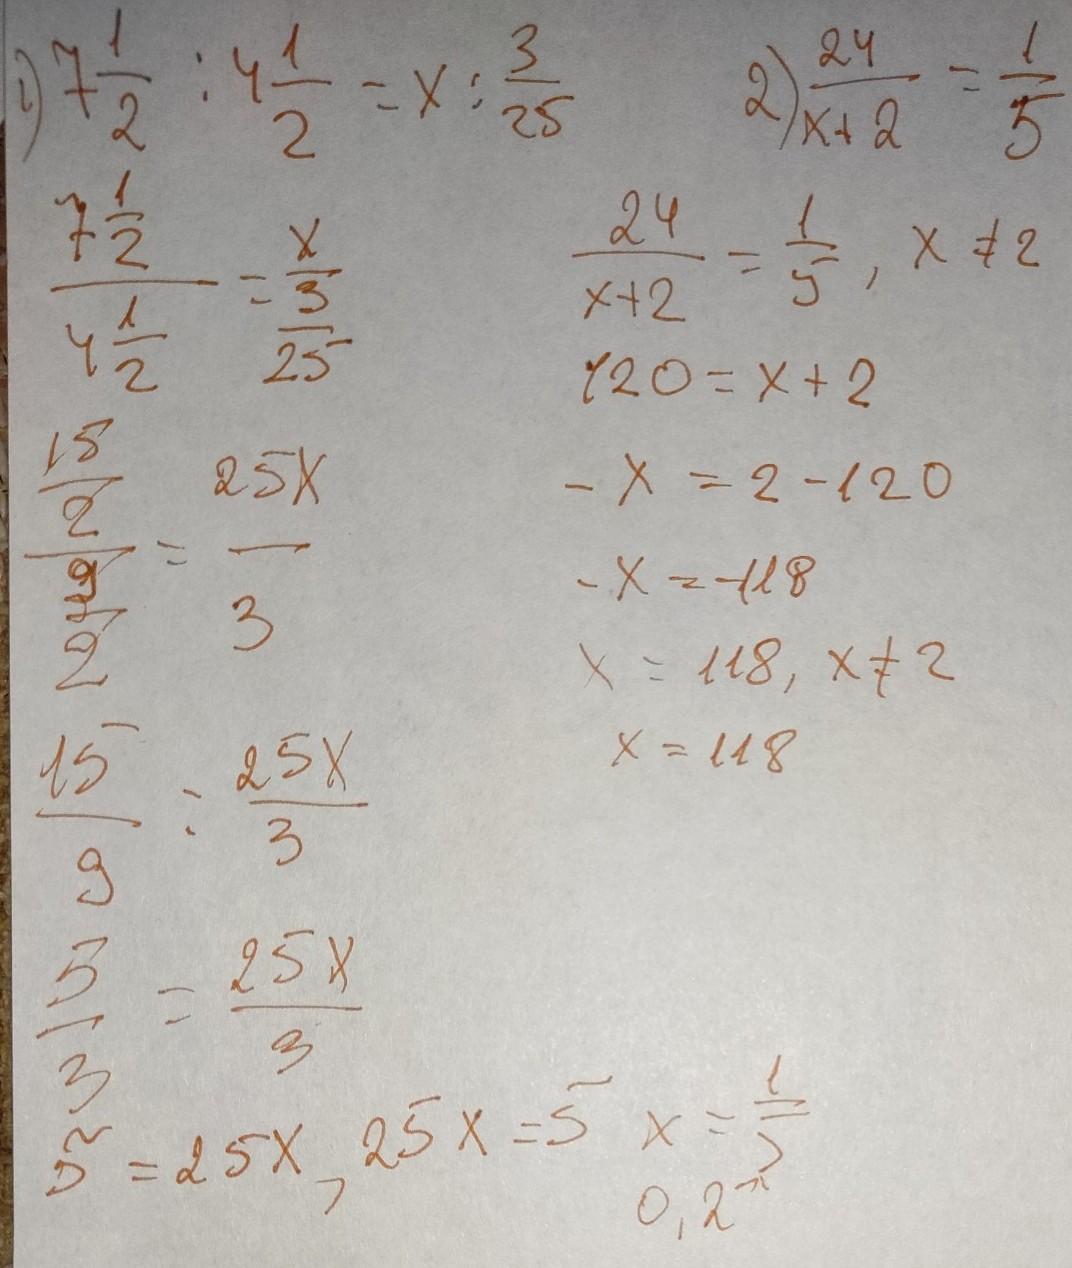 1) 7 1/2 : 4 1/2 = x : 3/25
(7 1/2)/(4 1/2) = x/(3/25)
(15/2)/(9/2) = 25x/3
15/9 = 25x/3
5/3 = 25x/3
5 = 25x, 25x = 5 x = 1/5
0,2
2) 24/(x+2) = 1/5
24/(x+2) = 1/5, x ≠ 2
120 = x + 2
- x = 2 - 120
- x = -118
x = 118, x ≠ 2
x = 118